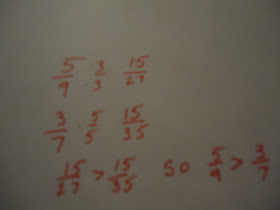 5/9 · 3/3 15/27
3/7 · 5/5 15/35
15/27 > 15/35 so 5/9 > 3/7